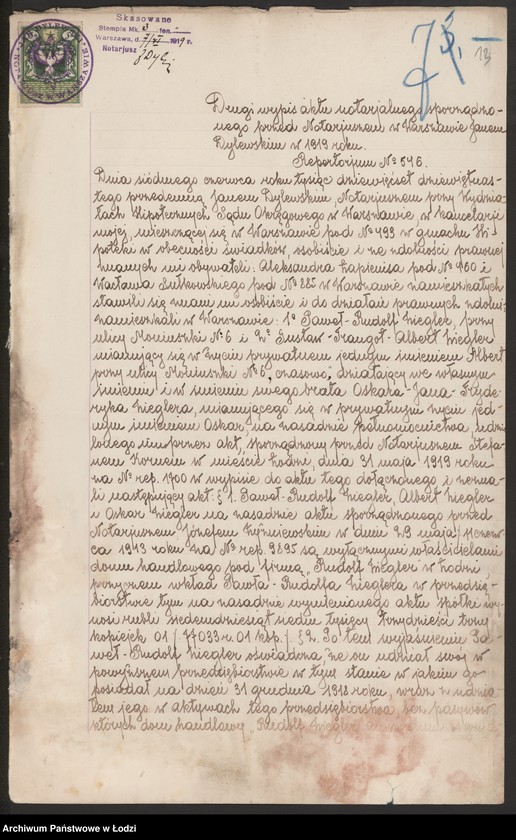 Skasowane
Stempla Mk. 3 fen.
Warszawa, d. 7/VI 1919 r.
Notarjusz
75,-
13
Drugi wypis aktu notarjalnego sporządzo-
nego przed Notarjuszem w Warszawie Janem
Dylewskim w 1919 roku.
Repertorjum № 516.
Dnia siódmego czerwca roku tysiąc dziewięćset dziewiętnas-
tego przedemną Janem Dylewskim, Notarjuszem przy Wydzia-
łach Hipotecznych Sądu Okręgowego w Warszawie w kancelarji
mojej, mieszczącej się w Warszawie pod № 493 w gmachu Hi-
poteki w obecności świadków, osobiście i ze zdolności prawnej
znanych mi obywateli: Aleksandra Łapiewisa pod № 460 i
Wacława Lutkowskiego pod № 885 w Warszawie zamieszkałych
stawili się znani mi osobiście i do działań prawnych zdolni,
zamieszkali w Warszawie: 1º Paweł-Rudolf Ziegler, przy
ulicy Moniuszki № 6 i 2º Gustaw-Traugot-Albert Ziegler
mianujący się w życiu prywatnem jednym imieniem Albert
przy ulicy Moniuszki № 6, czasowo, działający we własnym
imieniu i w imieniu swego brata Oskara-Jana-Fryde-
ryka Zieglera, mianującego się w prywatnym życiu jed-
nym imieniem Oskar, na zasadzie pełnomocnictwa, udzie-
lonego mu przez akt, sporządzony przed Notarjuszem Stefa-
nem Kornem w mieście Łodzi, dnia 31 maja 1919 roku
na № rep. 1700 w wypisie do aktu tego dołączonego i zezna-
li następujący akt: § 1. Paweł-Rudolf Ziegler, Albert Ziegler
i Oskar Ziegler na zasadzie aktu sporządzonego przed
Notarjuszem Józefem Żyźniewskim w dniu 29 maja/11 czerw-
ca 1913 roku na № rep. 9895 są wyłącznymi właścicielami
domu handlowego pod firmą "Rudolf Ziegler w Łodzi",
przyczem wkład Pawła-Rudolfa Zieglera w przedsię-
biorstwie tym na zasadzie wymienionego aktu spółki wy-
nosi rubli siedemdziesiąt siedm tysięcy trzydzieści trzy
kopiejek 01 /77033 r. 01 kop./ § 2. Po tem wyjaśnieniu Pa-
weł-Rudolf Ziegler oświadcza, że on udział swój w
powyższem przedsiębiorstwie w tym stanie w jakim go
posiadał na dzień 31 grudnia 1918 roku, wraz z udzia-
łem jego w aktywach tego przedsiębiorstwa, bez pasywów
których dom handlowy "Rudolf Ziegler
Archiwum Państwowe w Łodzi